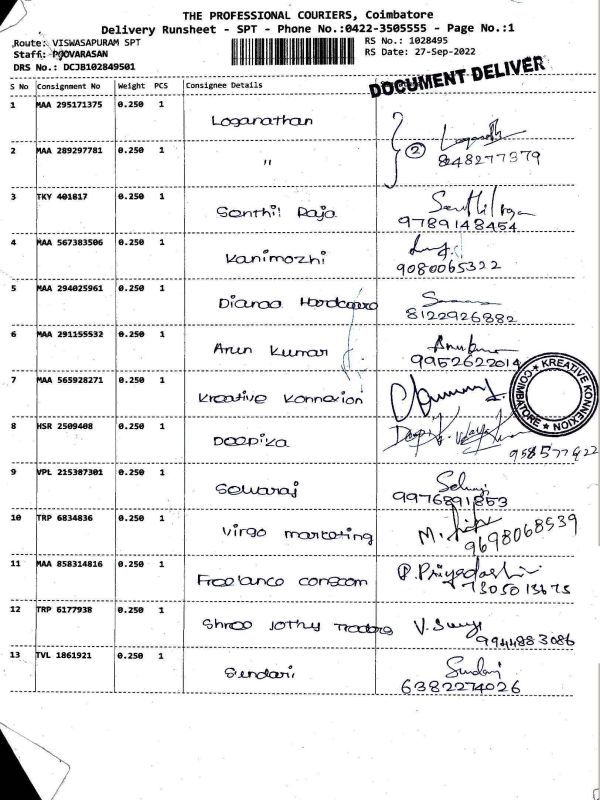 THE PROFESSIONAL COURIERS, Coimbatore
Delivery Runsheet - SPT - Phone No.:0422-3505555 - Page No.:1
Route: VISWASAPURAM SPT
RS No.: 1028495
Staff: POOVARASAN
RS Date: 27-Sep-2022
DRS No.: DCJB102849501
DOCUMENT DELIVER
S No Consignment No Weight PCS Consignee Details
1 MAA 295171375 0.250 1 Loganathan
2 MAA 289297781 0.250 1 " 2 848277379
3 TKY 401817 0.250 1 Senthil Raja 9789148454
4 MAA 567383506 0.250 1 Kanimozhi 9080065322
5 MAA 294025961 0.250 1 Dianaa Hardware 8122926882
6 MAA 291155532 0.250 1 Arun Kumar 9952622014
7 MAA 565928271 0.250 1 Kreative Konnexion
KREATIVE KONNEXION COIMBATORE
8 HSR 2509408 0.250 1 Deepika
9 VPL 215387301 0.250 1 Selvaraj Selvaraj 9976891853
10 TRP 6834836 0.250 1 Virgo marketing 9698068539
11 MAA 858314816 0.250 1 Freelance P. Priyadashini 7305013675
12 TRP 6177938 0.250 1 Shree Jothy Traders 9944883086
13 TVL 1861921 0.250 1 Sundari Sundari 6382274026